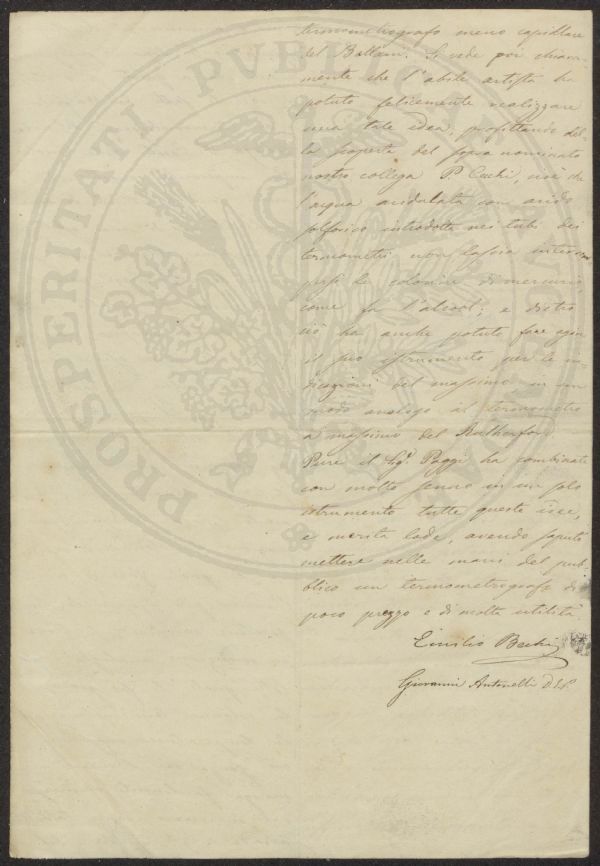 PROSPERITATI PUBLICAE
termometrografo meno capillare
del Bellani. Si vede poi chiara-
mente che l'abile artista ha
potuto felicemente realizzare
una tale idea, profittando del-
la scoperta del sopra nominato
nostro collega P. Cecchi, cioè che
l'acqua acidulata con acido
solforico introdotta nei tubi dei
termometri non lascia
le colonne di mercurio
come fa l'alcool; e dietro
ciò ha anche potuto fare agire
il suo istrumento per le in-
dicazioni del massimo in un
modo analogo al termometro
a massimo del Rutherford.
Pure il Sigr. Poggi ha combinate
con molto senno in un solo
istrumento tutte queste cose,
e merita lode, avendo saputo
mettere nelle mani del pub-
blico un termometrografo di
poco prezzo e di molta utilità.
Emilio Bechi
Giovanni Antonelli D.S.P.